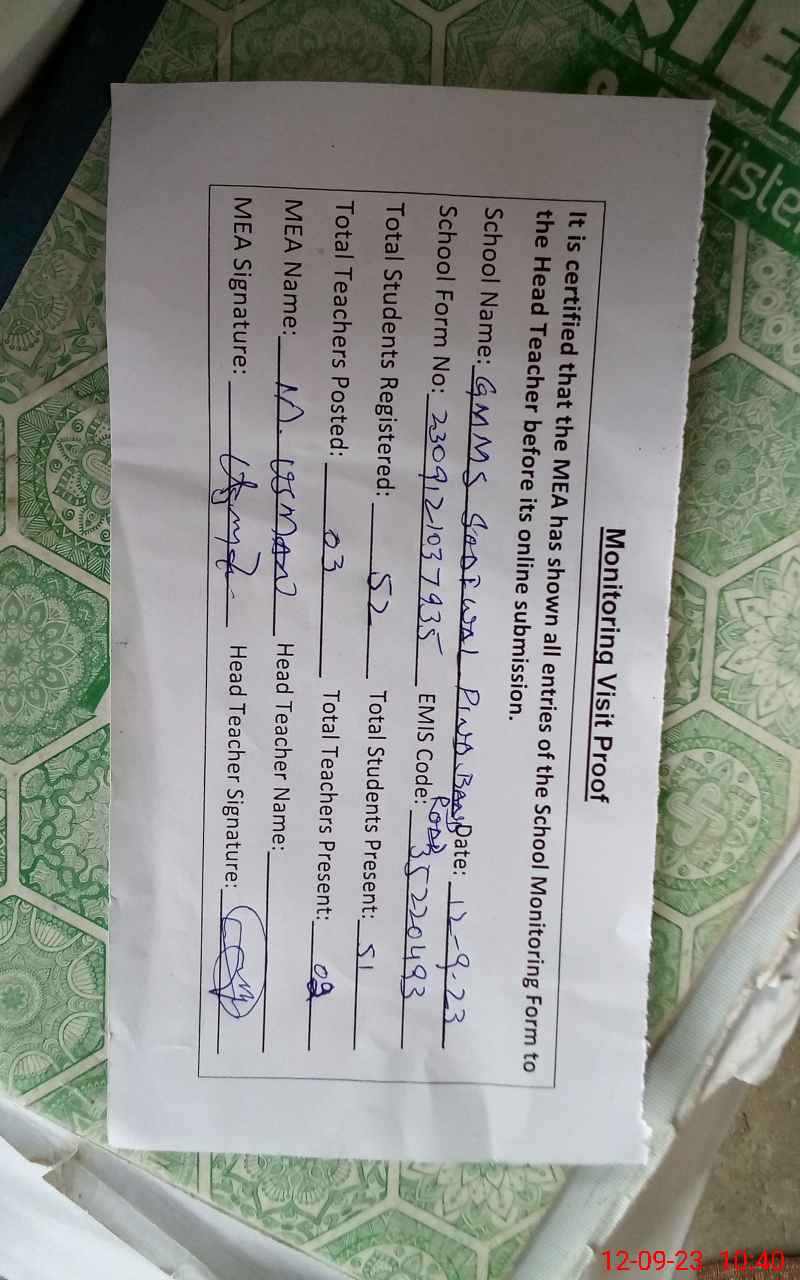 Monitoring Visit Proof
It is certified that the MEA has shown all entries of the School Monitoring Form to
the Head Teacher before its online submission.
School Name: GMMS PIND Date: 12-9-23
School Form No: 2309121037935 EMIS Code: 35220493
Total Students Registered: 52 Total Students Present: 51
Total Teachers Posted: 03 Total Teachers Present: 02
MEA Name: M. USMAN Head Teacher Name:
MEA Signature: Head Teacher Signature:
giste
12-09-23 10:40